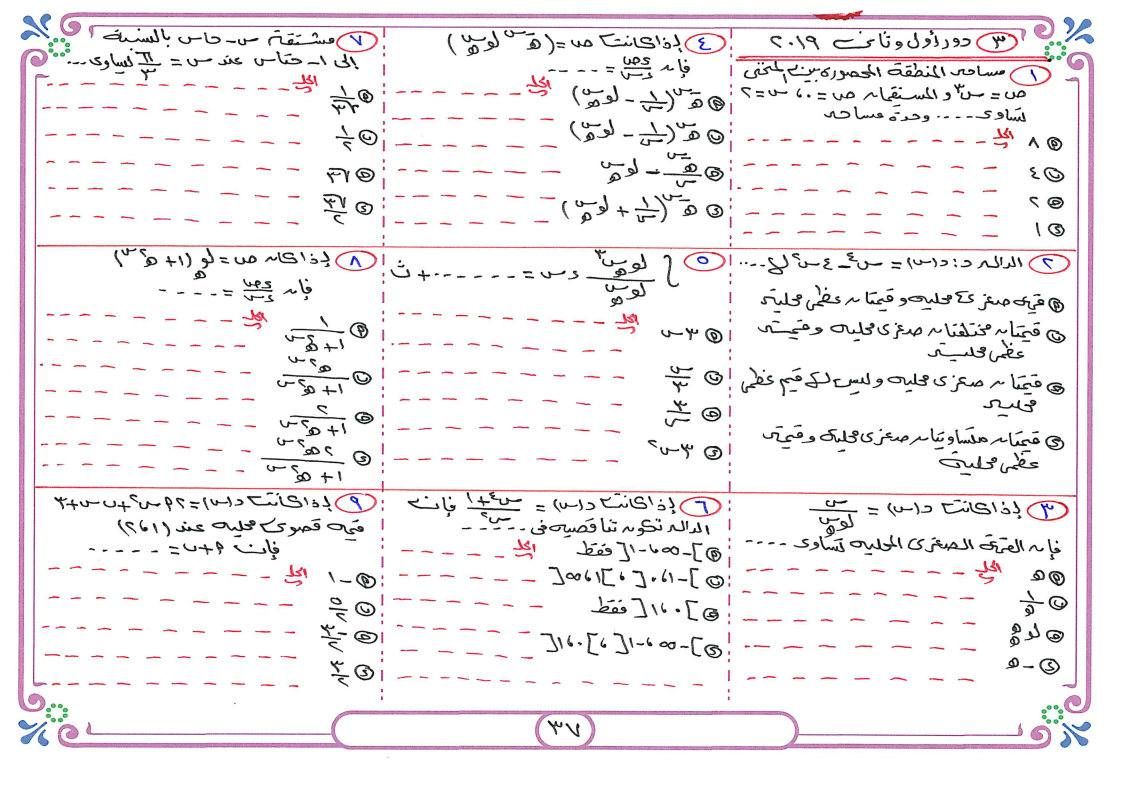 ٣ دور أول وثانى ٢٠١٩
١ مساحة المنطقة المحصورة بين المنحنى
ص = س٣ والمستقيمان ص = ٠ ، س = ٢
تساوى .... وحدة مساحة
٨ الحل
ب ٤
ج ٢
د ١
٢ الدالة د : د(س) = س٤ - ٤س٢ لها ....
قيمة صغرى محلية وقيمتان عظمى محلية
ب قيمتان مختلفتان صغرى محلية وقيمة
عظمى محلية
ج قيمتان صغرى محلية وليس لها قيم عظمى
محلية
د قيمتان متساويتان صغرى محلية وقيمة
عظمى محلية
٣ إذا كانت د(س) = س / لوهـ س
فإن القيمة الصغرى المحلية تساوى ....
هـ الحل
ب ١/هـ
ج لوهـ هـ
د - هـ
٤ إذا كانت ص = (هـس لوهـ س)
فإن ءص/ءس = ....
هـس (١/س - لوهـ س) الحل
ب هـس (١/س - لوهـ س)
ج هـس/س - لوهـ س
د هـس (١/س + لوهـ س)
٥ ∫ لوهـ س٣ / لوهـ س ءس = ....... + ث
٣س الحل
ب س/٣
ج ٣/س
د ٣س٢
٦ إذا كانت د(س) = س٢+١ / س فإن
الدالة تكون تناقصية فى ......
]-∞ ، -١[ فقط الحل
ب ]-١ ، ٠[ ، ]١ ، ∞[
ج ]٠ ، ١[ فقط
د ]-∞ ، -١[ ، ]٠ ، ١[
٧ مشتقة س - حاس بالنسبة
إلى ١ - حتاس عند س = π/٣ تساوى ...
١/√٣ الحل
ب ١/٢
ج √٣
د √٣/٢
٨ إذا كان ص = لوهـ (١ + هـ٢س)
فإن ءص/ءس = ....
١ / ١ + هـ٢س الحل
ب هـ٢س / ١ + هـ٢س
ج ٢ / ١ + هـ٢س
د ٢هـ٢س / ١ + هـ٢س
٩ إذا كانت د(س) = ٢م س٢ + ب س + ٣
قيمة قصوى محلية عند (١ ، ٢)
فإن م + ب = .....
-١ الحل
ب ٥/٢
ج -٣/٢
د ٣/٢
٣٧